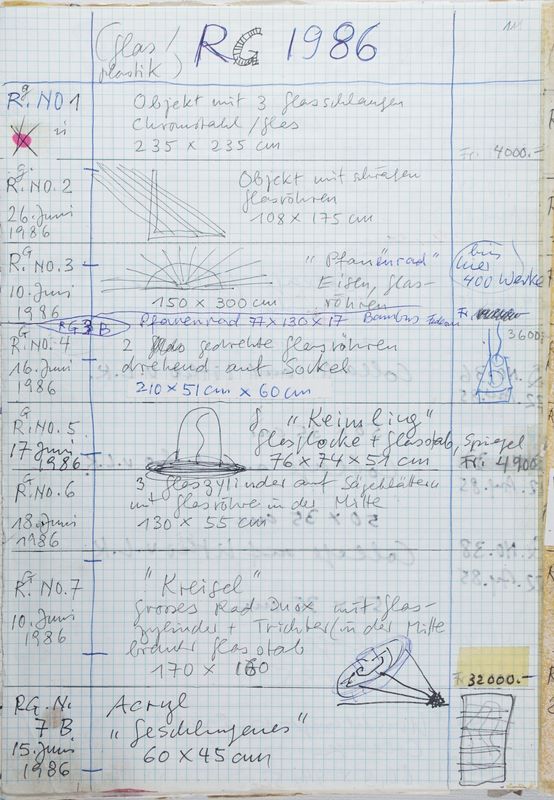 (Glas/
plastik)
RG 1986
RG. NO 1
Objekt mit 3 Glasschlangen
Chromstahl/Glas
235 x 235 cm
Fr. 4000.-
R.G. NO. 2
26. Juni
1986
Objekt mit schrägen
Glasröhren
108 x 175 cm
R.G NO. 3
10. Juni
1986
"Pfauenrad"
Eisen, Glas-
röhren
150 x 300 cm
bis
hier
400 Werke
RG 3 B
Pfauenrad 77 x 130 x 17 Bambus Federn
Fr.
3600
R.G NO. 4
16. Juni
1986
2 gedrehte Glasröhren
drehend auf Sockel
210 x 51 cm x 60 cm
R.G NO. 5
17 Juni
1986
"Keimling"
Glasglocke + Glasstab, Spiegel
76 x 74 x 51 cm
Fr. 4900
R.G NO. 6
18. Juni
1986
3 Glaszylinder auf Sägeblättern
mit Glasröhre in der Mitte
130 x 55 cm
R.G NO. 7
10. Juni
1986
"Kreisel"
grosses Rad Inox mit Glas-
zylinder + Trichter (in der Mitte
Glasstab
170 x 160
Fr 32000.-
RG. N.
7 B.
15. Juni
1986
Acryl
"Geschlungenes"
60 x 45 cm